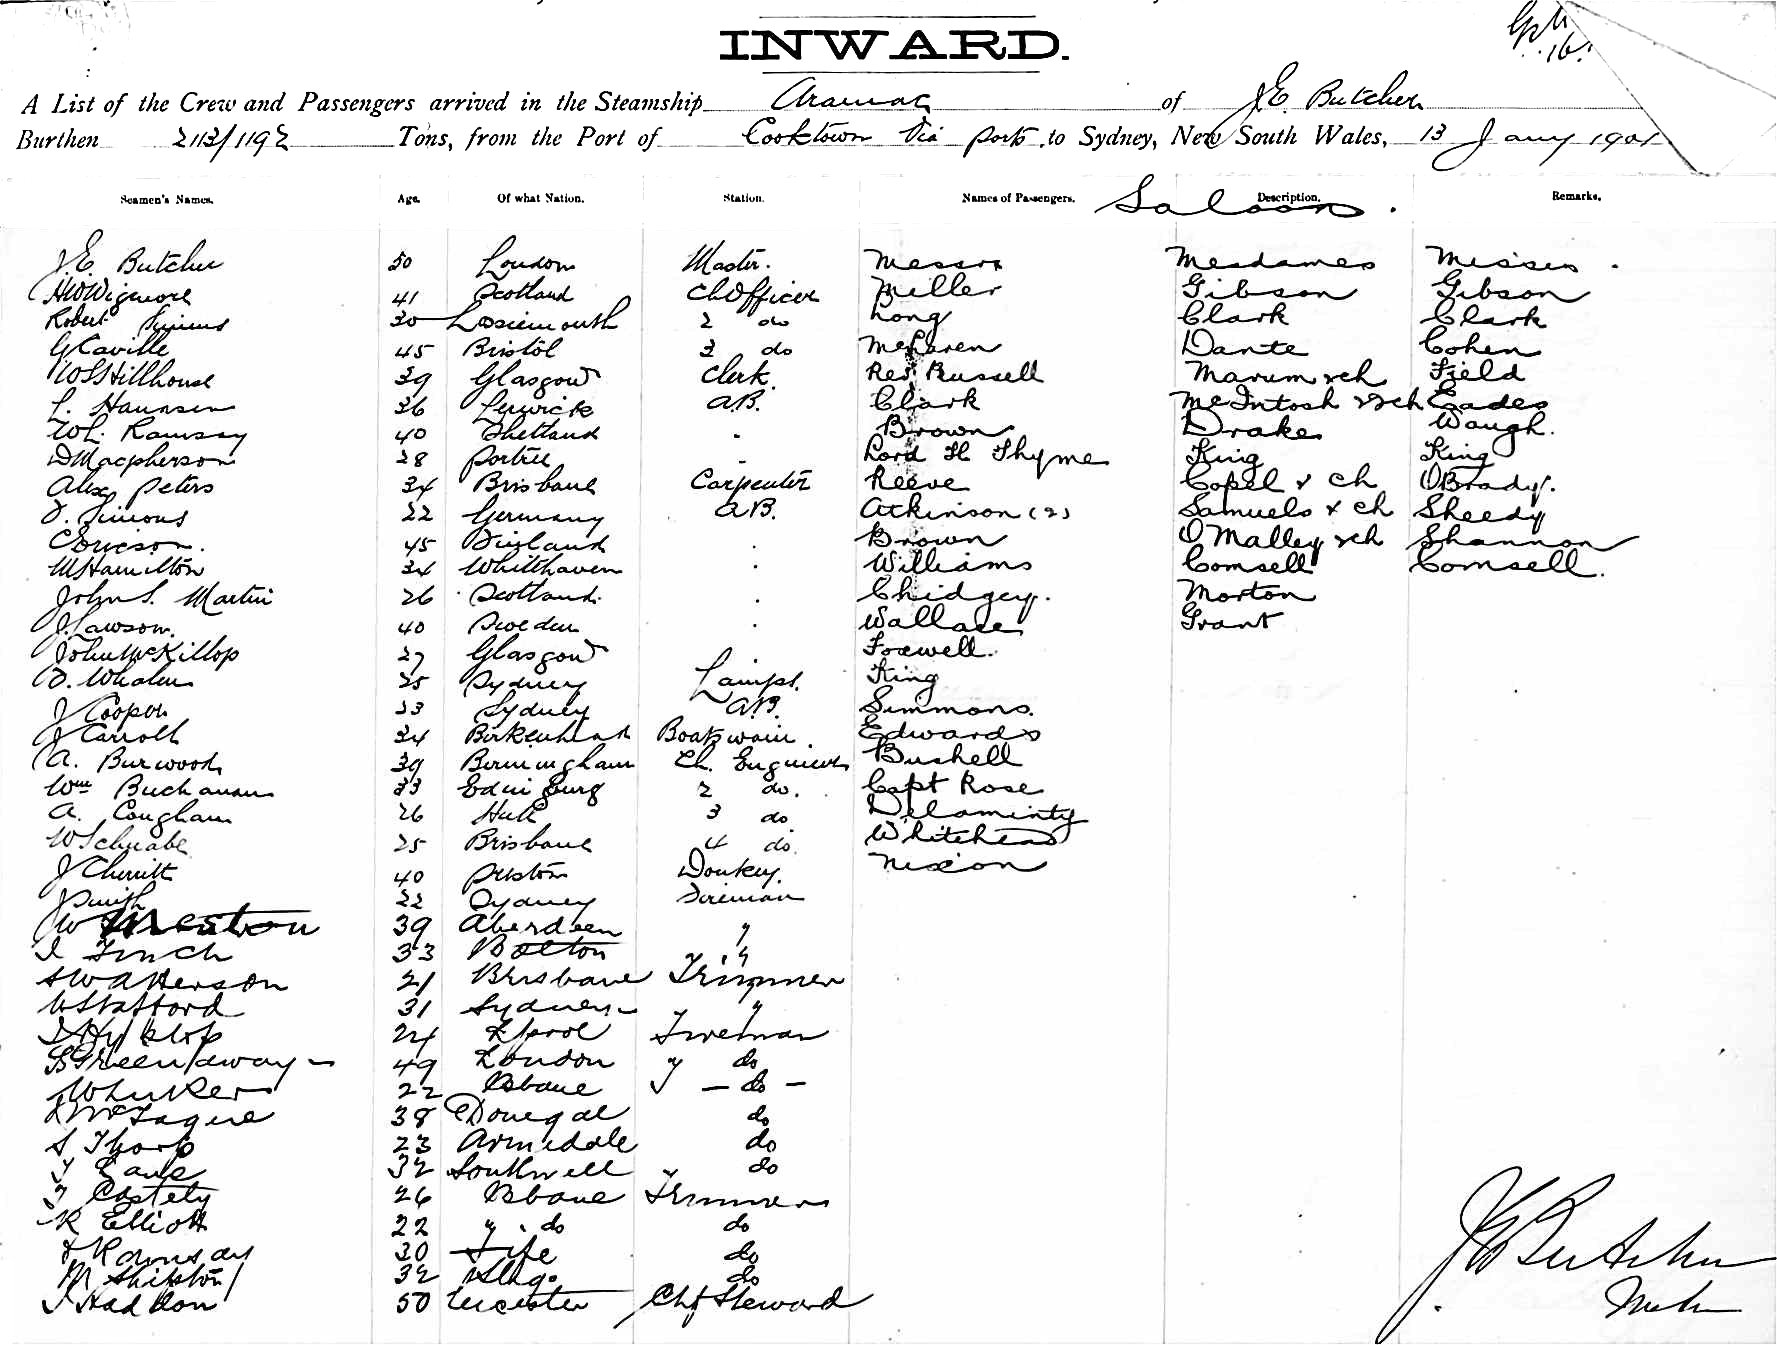 INWARD.
A List of the Crew and Passengers arrived in the Steamship Aramac of J.E. Butcher
Burthen 2113/1192 Tons, from the Port of Cooktown Via ports to Sydney, New South Wales, 13 Jany 1901
Seamen's Names. Age. Of what Nation. Station. Names of Passengers. Saloon. Description. Remarks.
J.E. Butcher 50 London Master. Messrs Mesdames Misses.
HW Wigmore 41 Scotland Ch Officer Miller Gibson Gibson
Robert 30 Lossiemouth 2 do Long Clark Clark
G Caville 45 Bristol 3 do McLaren Dante Cohen
WS Hillhouse 39 Glasgow Clerk. Rev. Russell Marum & ch Field
L. Haunsen 36 Lerwick A.B. Clark McIntosh & ch Eades
Wh. Ramsay 40 Shetland . Brown Drake Waugh.
D Macpherson 28 Portree . Lord H Thyme King King
Alex Peters 34 Brisbane Carpenter Reeve Copel & ch O Brady.
J. Simons 22 Germany A.B. Atkinson (2) Samuels & ch Sheedy
C Ericson. 45 Finland . Brown O Malley & ch Shannon
W Hamilton 34 Whitehaven . Williams Comsell Comsell.
John S. Martin 26 Scotland. . Chidgey. Morton
J. Lawson. 40 Sweden . Wallace Grant
John McKillop 27 Glasgow Foxwell.
D. Whalen 25 Sydney Lamps. King
J Cooper 23 Sydney A.B. Simmons.
J Carroll 34 Birkenhead Boatswain. Edwards
A. Burwood 39 Birmingham Ch. Engineer Bushell
Wm Buchanan 33 Edinburg 2 do. Capt Rose
A. Coughan 26 Hull 3 do Delaminty
W Schnabe 25 Brisbane 4 do. Whitehead
J Cherritt 40 Preston Donkey. Nixon
J Smith 22 Sydney Fireman
W Meston 39 Aberdeen "
I Finch 33 Bolton "
H Watterson 21 Brisbane Trimmer
W Stafford 31 Sydney "
24 L'pool Fireman
S Greenaway 49 London " do
22 Bbane " - do -
J McTague 38 Donegal do
S Thorp 23 Armidale do
32 Southwell do
T Costely 26 Bbane Trimmers
R Elliott 22 " . do do
J Ramsay 30 Fife do
M Shipton 32 do
J Haddon 50 Leicester Chf Steward
J E Butcher